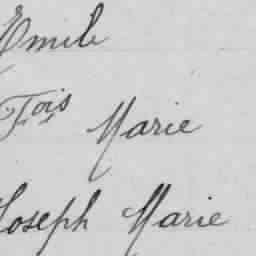 Emile
Fois Marie
Joseph Marie